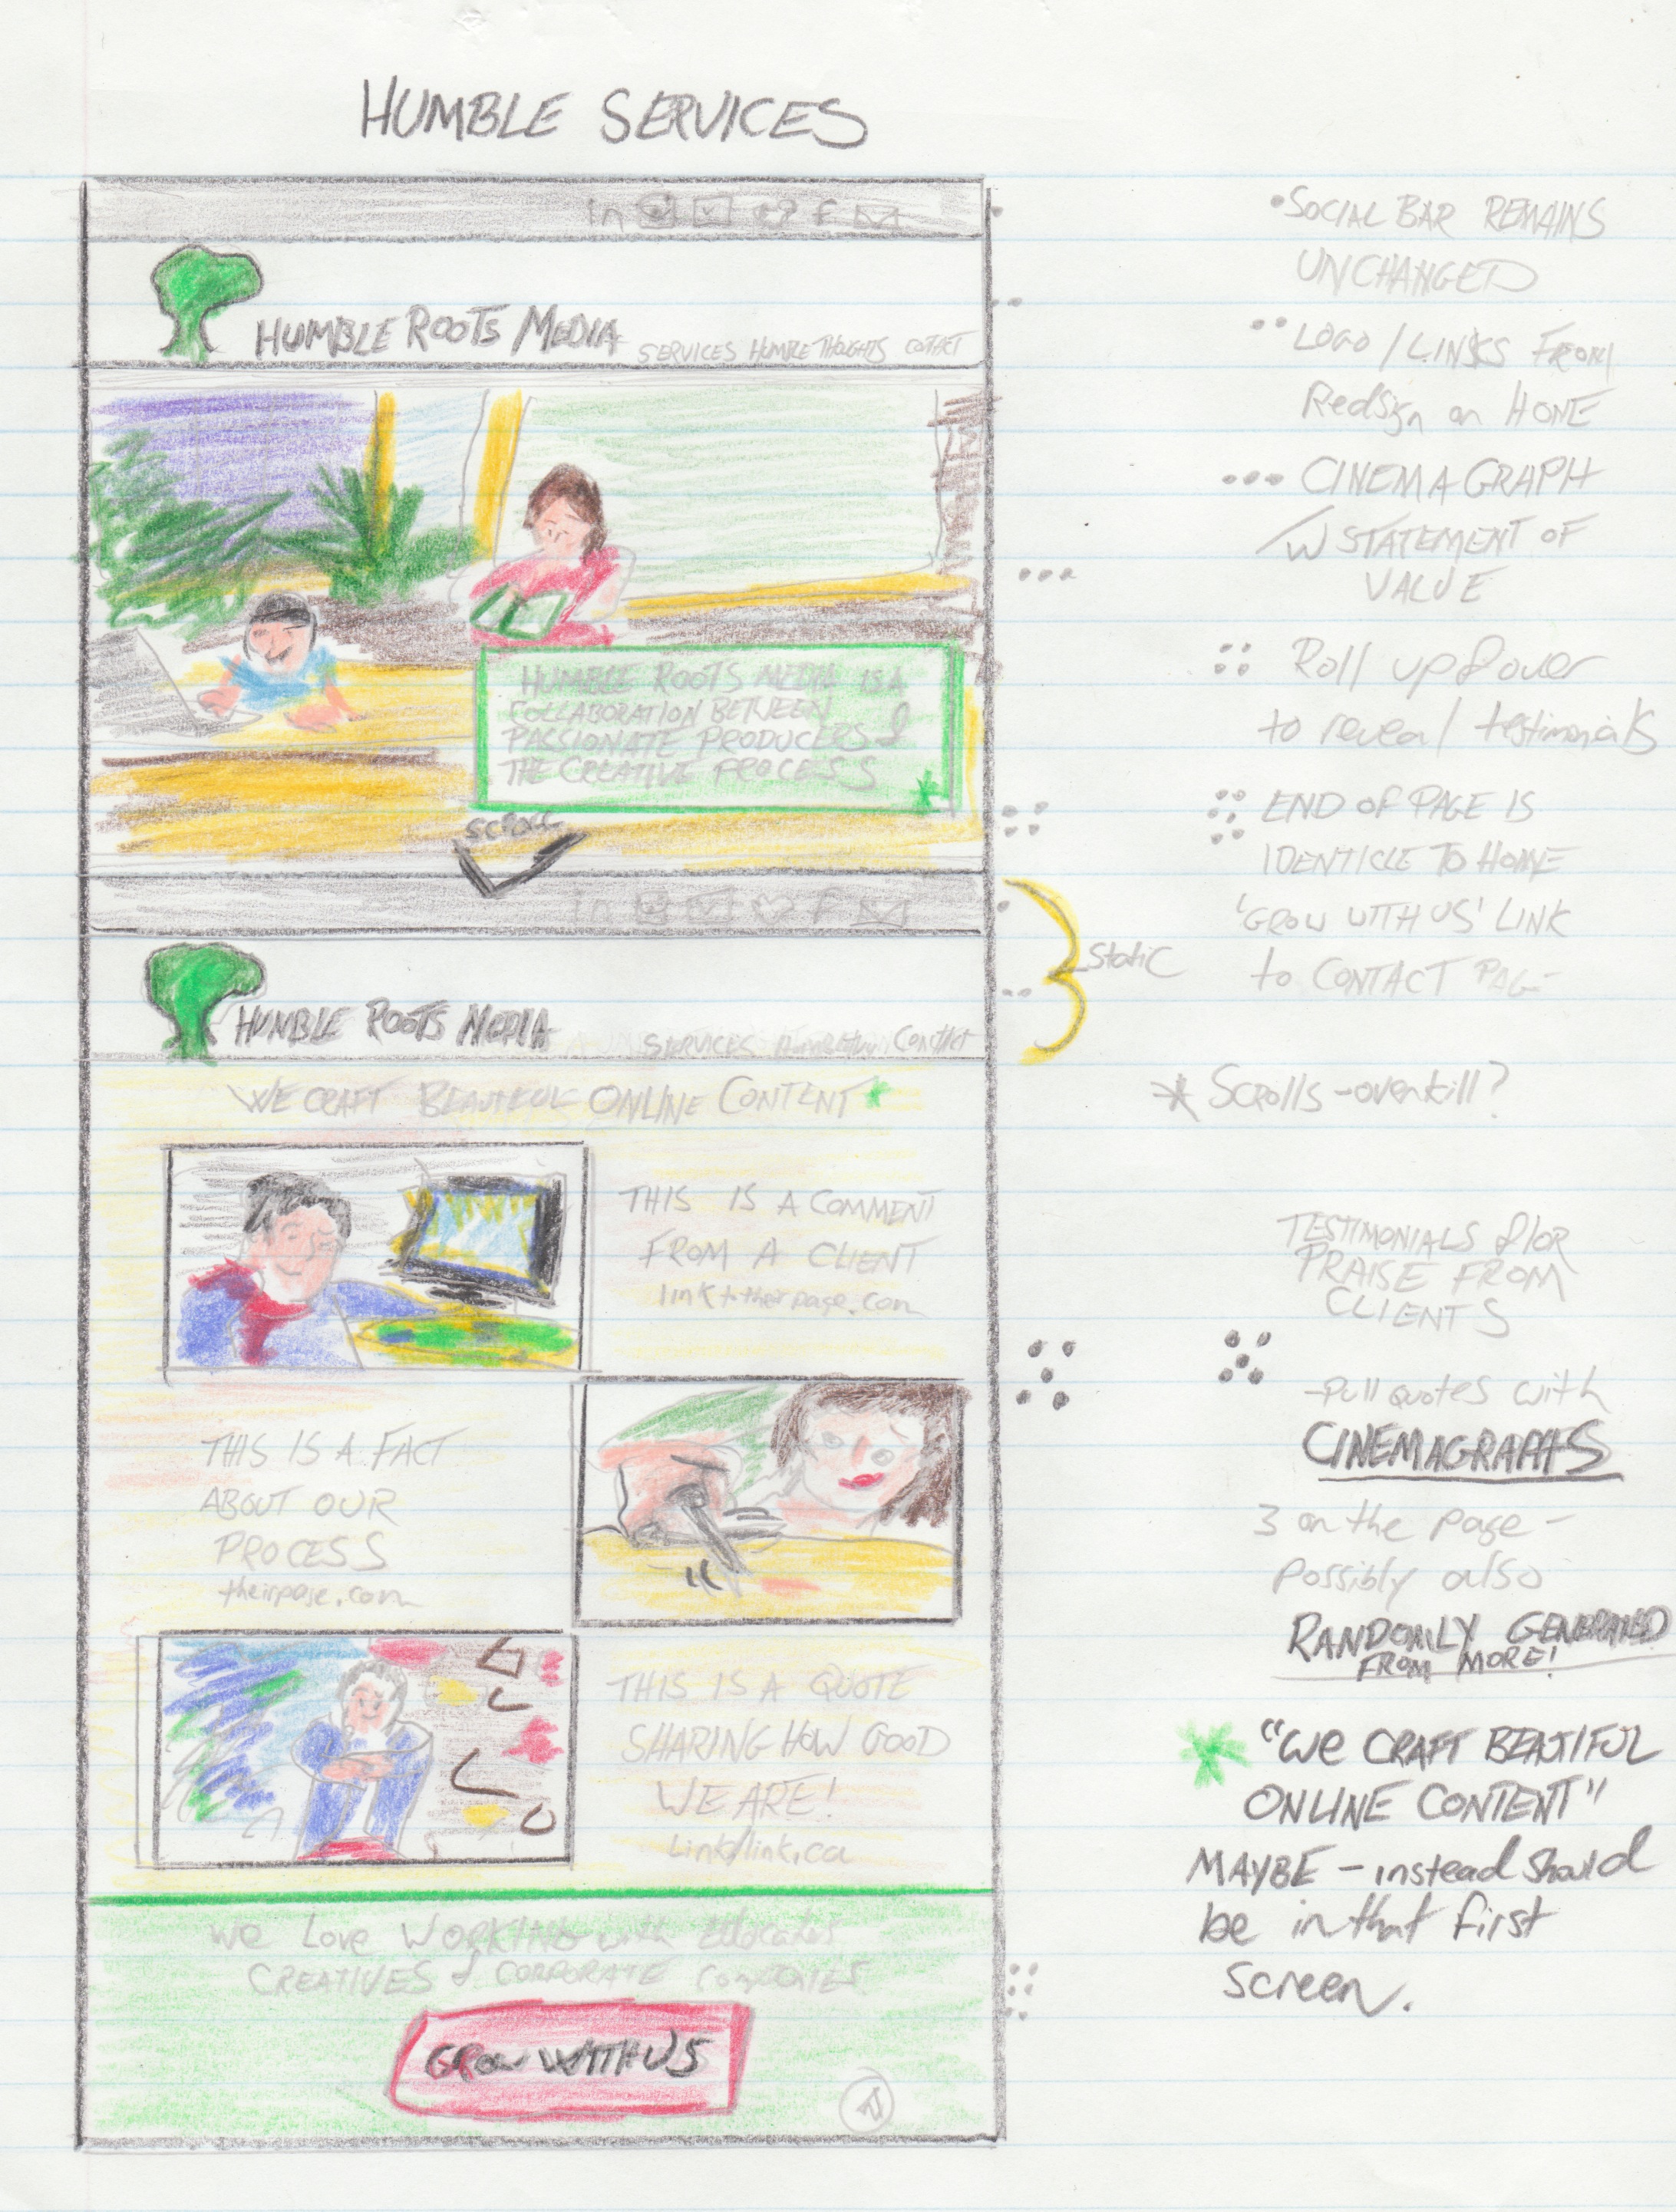 HUMBLE SERVICES
in f
HUMBLE ROOTS MEDIA
SERVICES HUMBLE THOUGHTS CONTACT
HUMBLE ROOTS MEDIA IS A
COLLABORATION BETWEEN
PASSIONATE PRODUCERS &
THE CREATIVE PROCESS
SCROLL
in f
HUMBLE ROOTS MEDIA
SERVICES CONTACT
WE CRAFT BEAUTIFUL ONLINE CONTENT*
THIS IS A COMMENT
FROM A CLIENT
linktotheirpage.com
THIS IS A FACT
ABOUT OUR
PROCESS
theirpage.com
THIS IS A QUOTE
SHARING HOW GOOD
WE ARE!
Link/link.ca
We Love WORKING with
CREATIVES & CORPORATE
GROW WITH US
• SOCIAL BAR REMAINS
UNCHANGED
•• LOGO / LINKS FROM
Redsign on HOME
••• CINEMAGRAPH
/W STATEMENT OF
VALUE
Roll up & over
to reveal testimonials
END OF PAGE IS
IDENTICLE TO HOME
'GROW WITH US' LINK
to CONTACT PAGE
Static
* SCROLLS - overkill?
TESTIMONIALS &/OR
PRAISE FROM
CLIENTS
- pull quotes with
CINEMAGRAPHS
3 on the page -
possibly also
RANDOMLY GENERATED
FROM MORE!
* "WE CRAFT BEAUTIFUL
ONLINE CONTENT"
MAYBE - instead should
be in that first
screen.